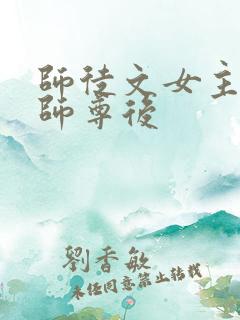 師徒文女主
師尊後
劉香敏
未經同意禁止轉載